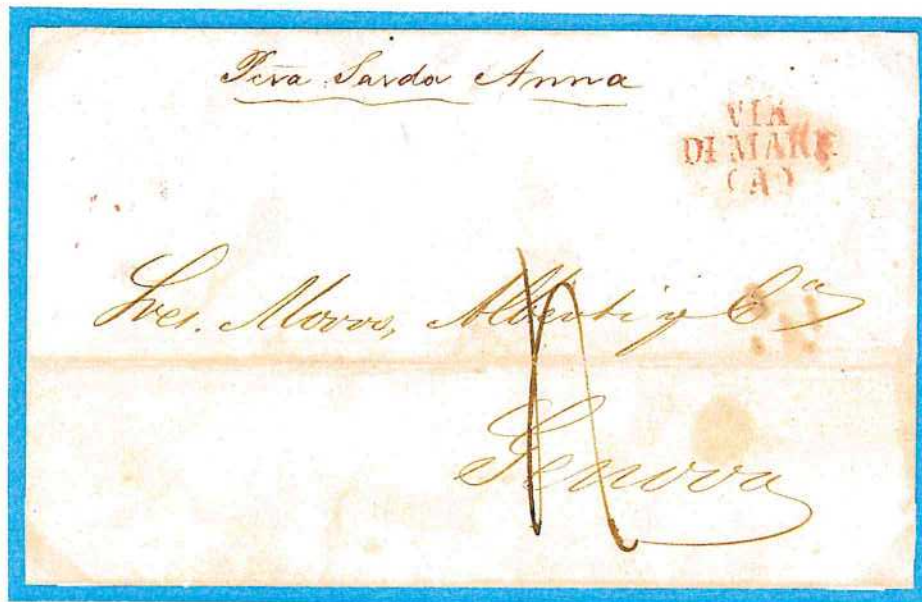 Pcra Sarda Anna
VIA
DI MARE
(A)
Sres. Alberti y Cª
Genova